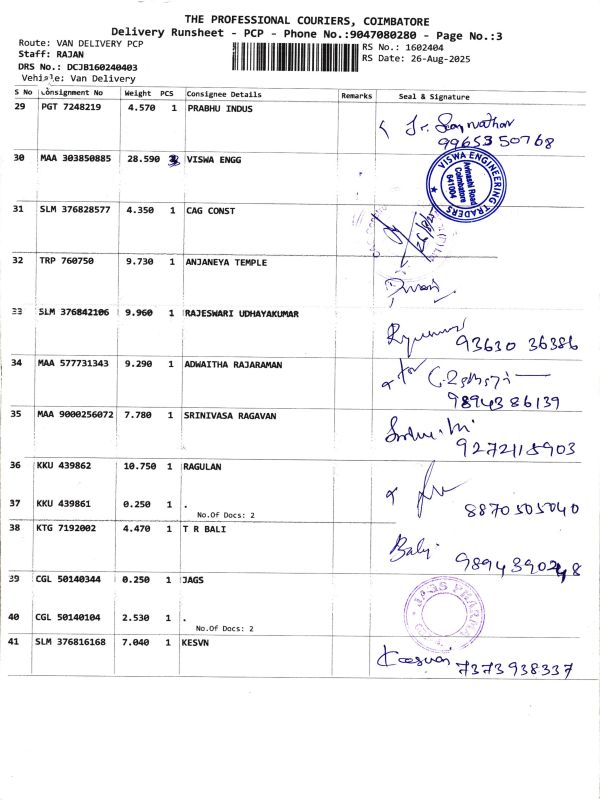 THE PROFESSIONAL COURIERS, COIMBATORE
Delivery Runsheet - PCP - Phone No.:9047080280 - Page No.:3
Route: VAN DELIVERY PCP
RS No.: 1602404
Staff: RAJAN
RS Date: 26-Aug-2025
DRS No.: DCJB160240403
Vehicle: Van Delivery
S No Consignment No Weight PCS Consignee Details Remarks Seal & Signature
29 PGT 7248219 4.570 1 PRABHU INDUS
9965350768
30 MAA 303850885 28.590 VISWA ENGG
VISWA ENGINEERING TRADERS
Avinashi Road
Coimbatore
641004
31 SLM 376828577 4.350 1 CAG CONST
32 TRP 760750 9.730 1 ANJANEYA TEMPLE
33 SLM 376842106 9.960 1 RAJESWARI UDHAYAKUMAR
93630 36386
34 MAA 577731343 9.290 1 ADWAITHA RAJARAMAN
9894386139
35 MAA 9000256072 7.780 1 SRINIVASA RAGAVAN
36 KKU 439862 10.750 1 RAGULAN
37 KKU 439861 0.250 1 .
No.Of Docs: 2
8870505040
38 KTG 7192002 4.470 1 T R BALI
Bali
39 CGL 50140344 0.250 1 JAGS
JAGS PHARMA
40 CGL 50140104 2.530 1 .
No.Of Docs: 2
41 SLM 376816168 7.040 1 KESVN
7373938337